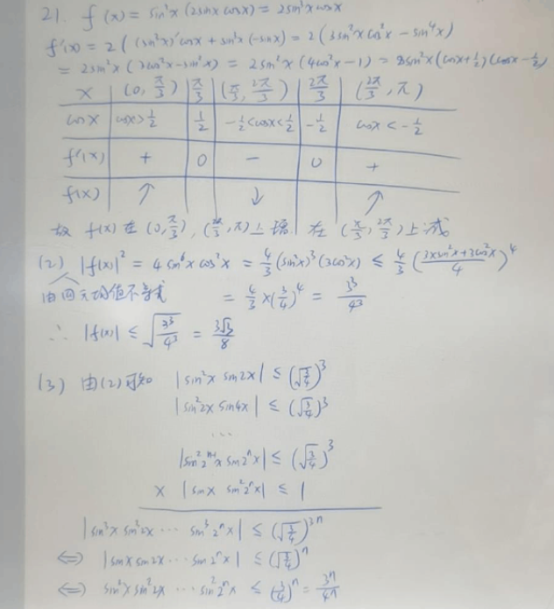 21. f(x) = sin²x (2sinx cosx) = 2sin³x cosx
f'(x) = 2( (sin³x)'cosx + sin³x (-sinx) = 2( 3sin²x cos²x - sin⁴x)
= 2sin²x ( 3cos²x - sin²x) = 2sin²x (4cos²x - 1) = 8sin²x (cosx + 1/2)(cosx - 1/2)
x (0, π/3) π/3 (π/3, 2π/3) 2π/3 (2π/3, π)
cosx cosx > 1/2 1/2 -1/2 < cosx < 1/2 -1/2 cosx < -1/2
f'(x) + 0 - 0 +
f(x) ↑ ↓ ↑
故 f(x) 在 (0, π/3), (2π/3, π) 上增 在 (π/3, 2π/3) 上减
(2) |f(x)|² = 4 sin⁶x cos²x = 4/3 (sin²x)³ (3cos²x) ≤ 4/3 ( (3sin²x + 3cos²x)/4 )⁴
由四元均值不等式 = 4/3 × (3/4)⁴ = 3³/4³
∴ |f(x)| ≤ √(3³/4³) = 3√3/8
(3) 由(2)可知 |sin²x sin2x| ≤ (√(3/4))³
|sin²2x sin4x| ≤ (√(3/4))³
...
|sin²2ⁿ⁻¹x sin2ⁿx| ≤ (√(3/4))³
× |sinx sin²2ⁿx| ≤ 1
|sin³x sin³2x ... sin³2ⁿx| ≤ (√(3/4))³ⁿ
⇔ |sinx sin2x ... sin2ⁿx| ≤ (√(3/4))ⁿ
⇔ sin²x sin²2x ... sin²2ⁿx ≤ (3/4)ⁿ = 3ⁿ/4ⁿ